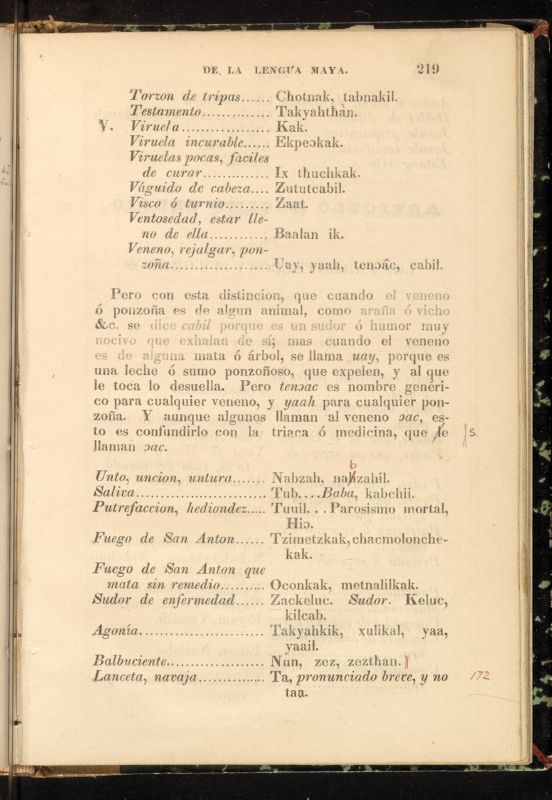 DE LA LENGUA MAYA. 219
Torzon de tripas...... Chotnak, tabnakil.
Testamento............. Takyahthàn.
V. Viruela.................. Kak.
Viruela incurable...... Ekpeɔkak.
Viruelas pocas, fàciles
de curar............. Ix thuchkak.
Váguido de cabeza.... Zututcabil.
Visco ó turnio......... Zaat.
Ventosedad, estar lle-
no de ella............ Baalan ik.
Veneno, rejalgar, pon-
zoña.................. Uay, yaah, tenɔâc, cabil.
Pero con esta distincion, que cuando el veneno
ó ponzoña es de algun animal, como araña ó vicho
&c. se dice cabil porque es un sudor ó humor muy
nocivo que exhalan de sí; mas cuando el veneno
es de alguna mata ó árbol, se llama uay, porque es
una leche ó sumo ponzoñoso, que expelen, y al que
le toca lo desuella. Pero tenɔac es nombre genéri-
co para cualquier veneno, y yaah para cualquier pon-
zoña. Y aunque algunos llaman al veneno ɔac, es-
to es confundirlo con la triaca ó medicina, que le s.
llaman ɔac.
b
Unto, uncion, untura....... Nabzah, nahzahil.
Saliva.......................... Tub....Baba, kabchii.
Putrefaccion, hediondez..... Tuuil... Parosismo mortal,
Hiɔ.
Fuego de San Anton...... Tzimetzkak, chacmolonche-
kak.
Fuego de San Anton que
mata sin remedio.......... Oconkak, metnalilkak.
Sudor de enfermedad...... Zackeluc. Sudor. Keluc,
kilcab.
Agonía......................... Takyahkik, xulikal, yaa,
yaail.
Balbuciente.................... Nun, zez, zezthan.
Lanceta, navaja.............. Ta, pronunciado breve, y no 172
taa.